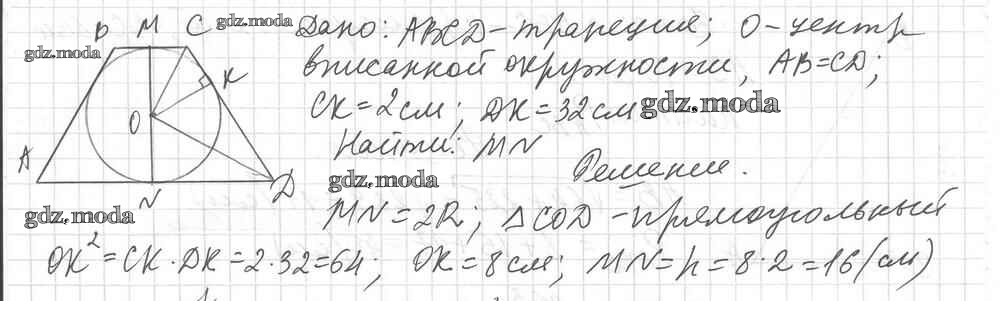 B M C gdz.moda Дано: ABCD - трапеция; O - центр
gdz.moda вписанной окружности, AB = CD;
K CK = 2 см; DK = 32 см gdz.moda
O Найти: MN
A gdz.moda Решение.
N D
gdz.moda MN = 2R; △COD - прямоугольный
OK² = CK · DK = 2 · 32 = 64; OK = 8 см; MN = h = 8 · 2 = 16 (см)